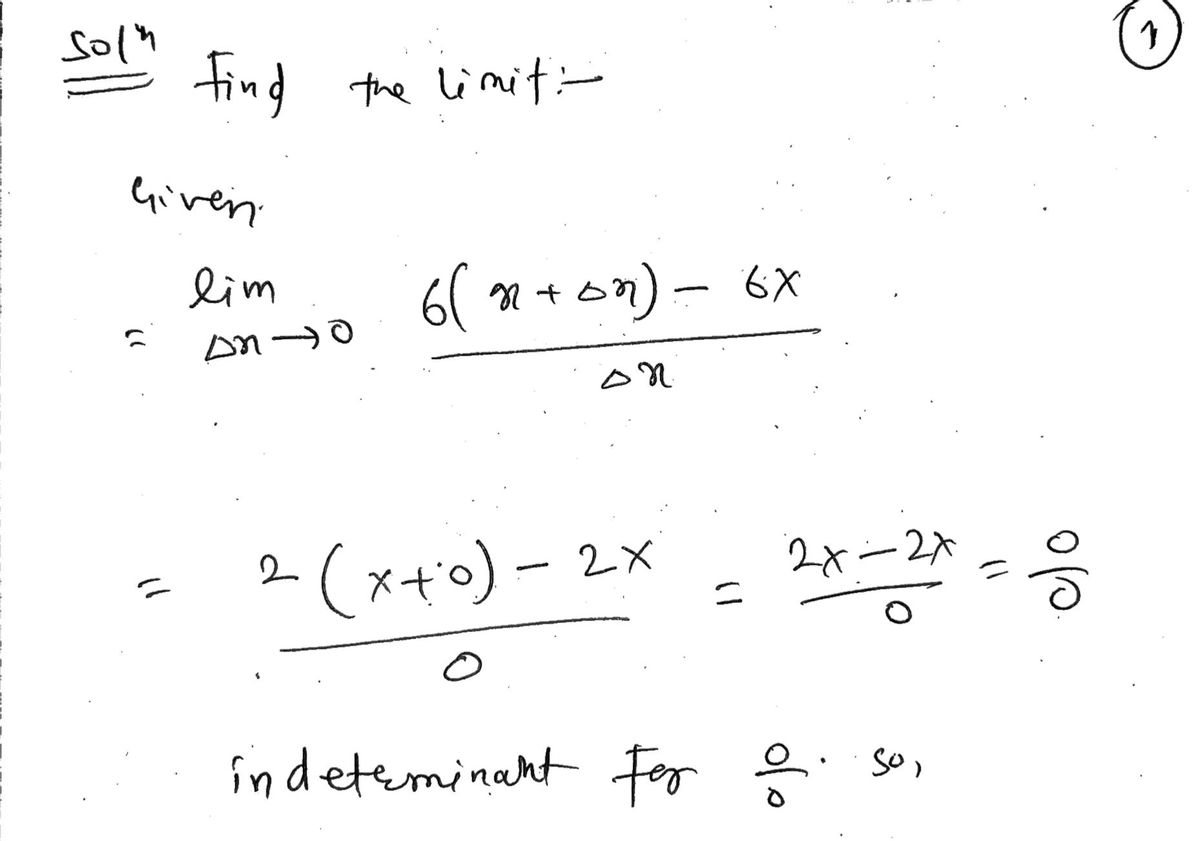 Soln
①
Find the limit:-
Given
= lim Δx→0 6(x+Δx) - 6x / Δx
= 2(x+0) - 2x / 0 = 2x-2x / 0 = 0/0
indeterminant for 0/0. so,